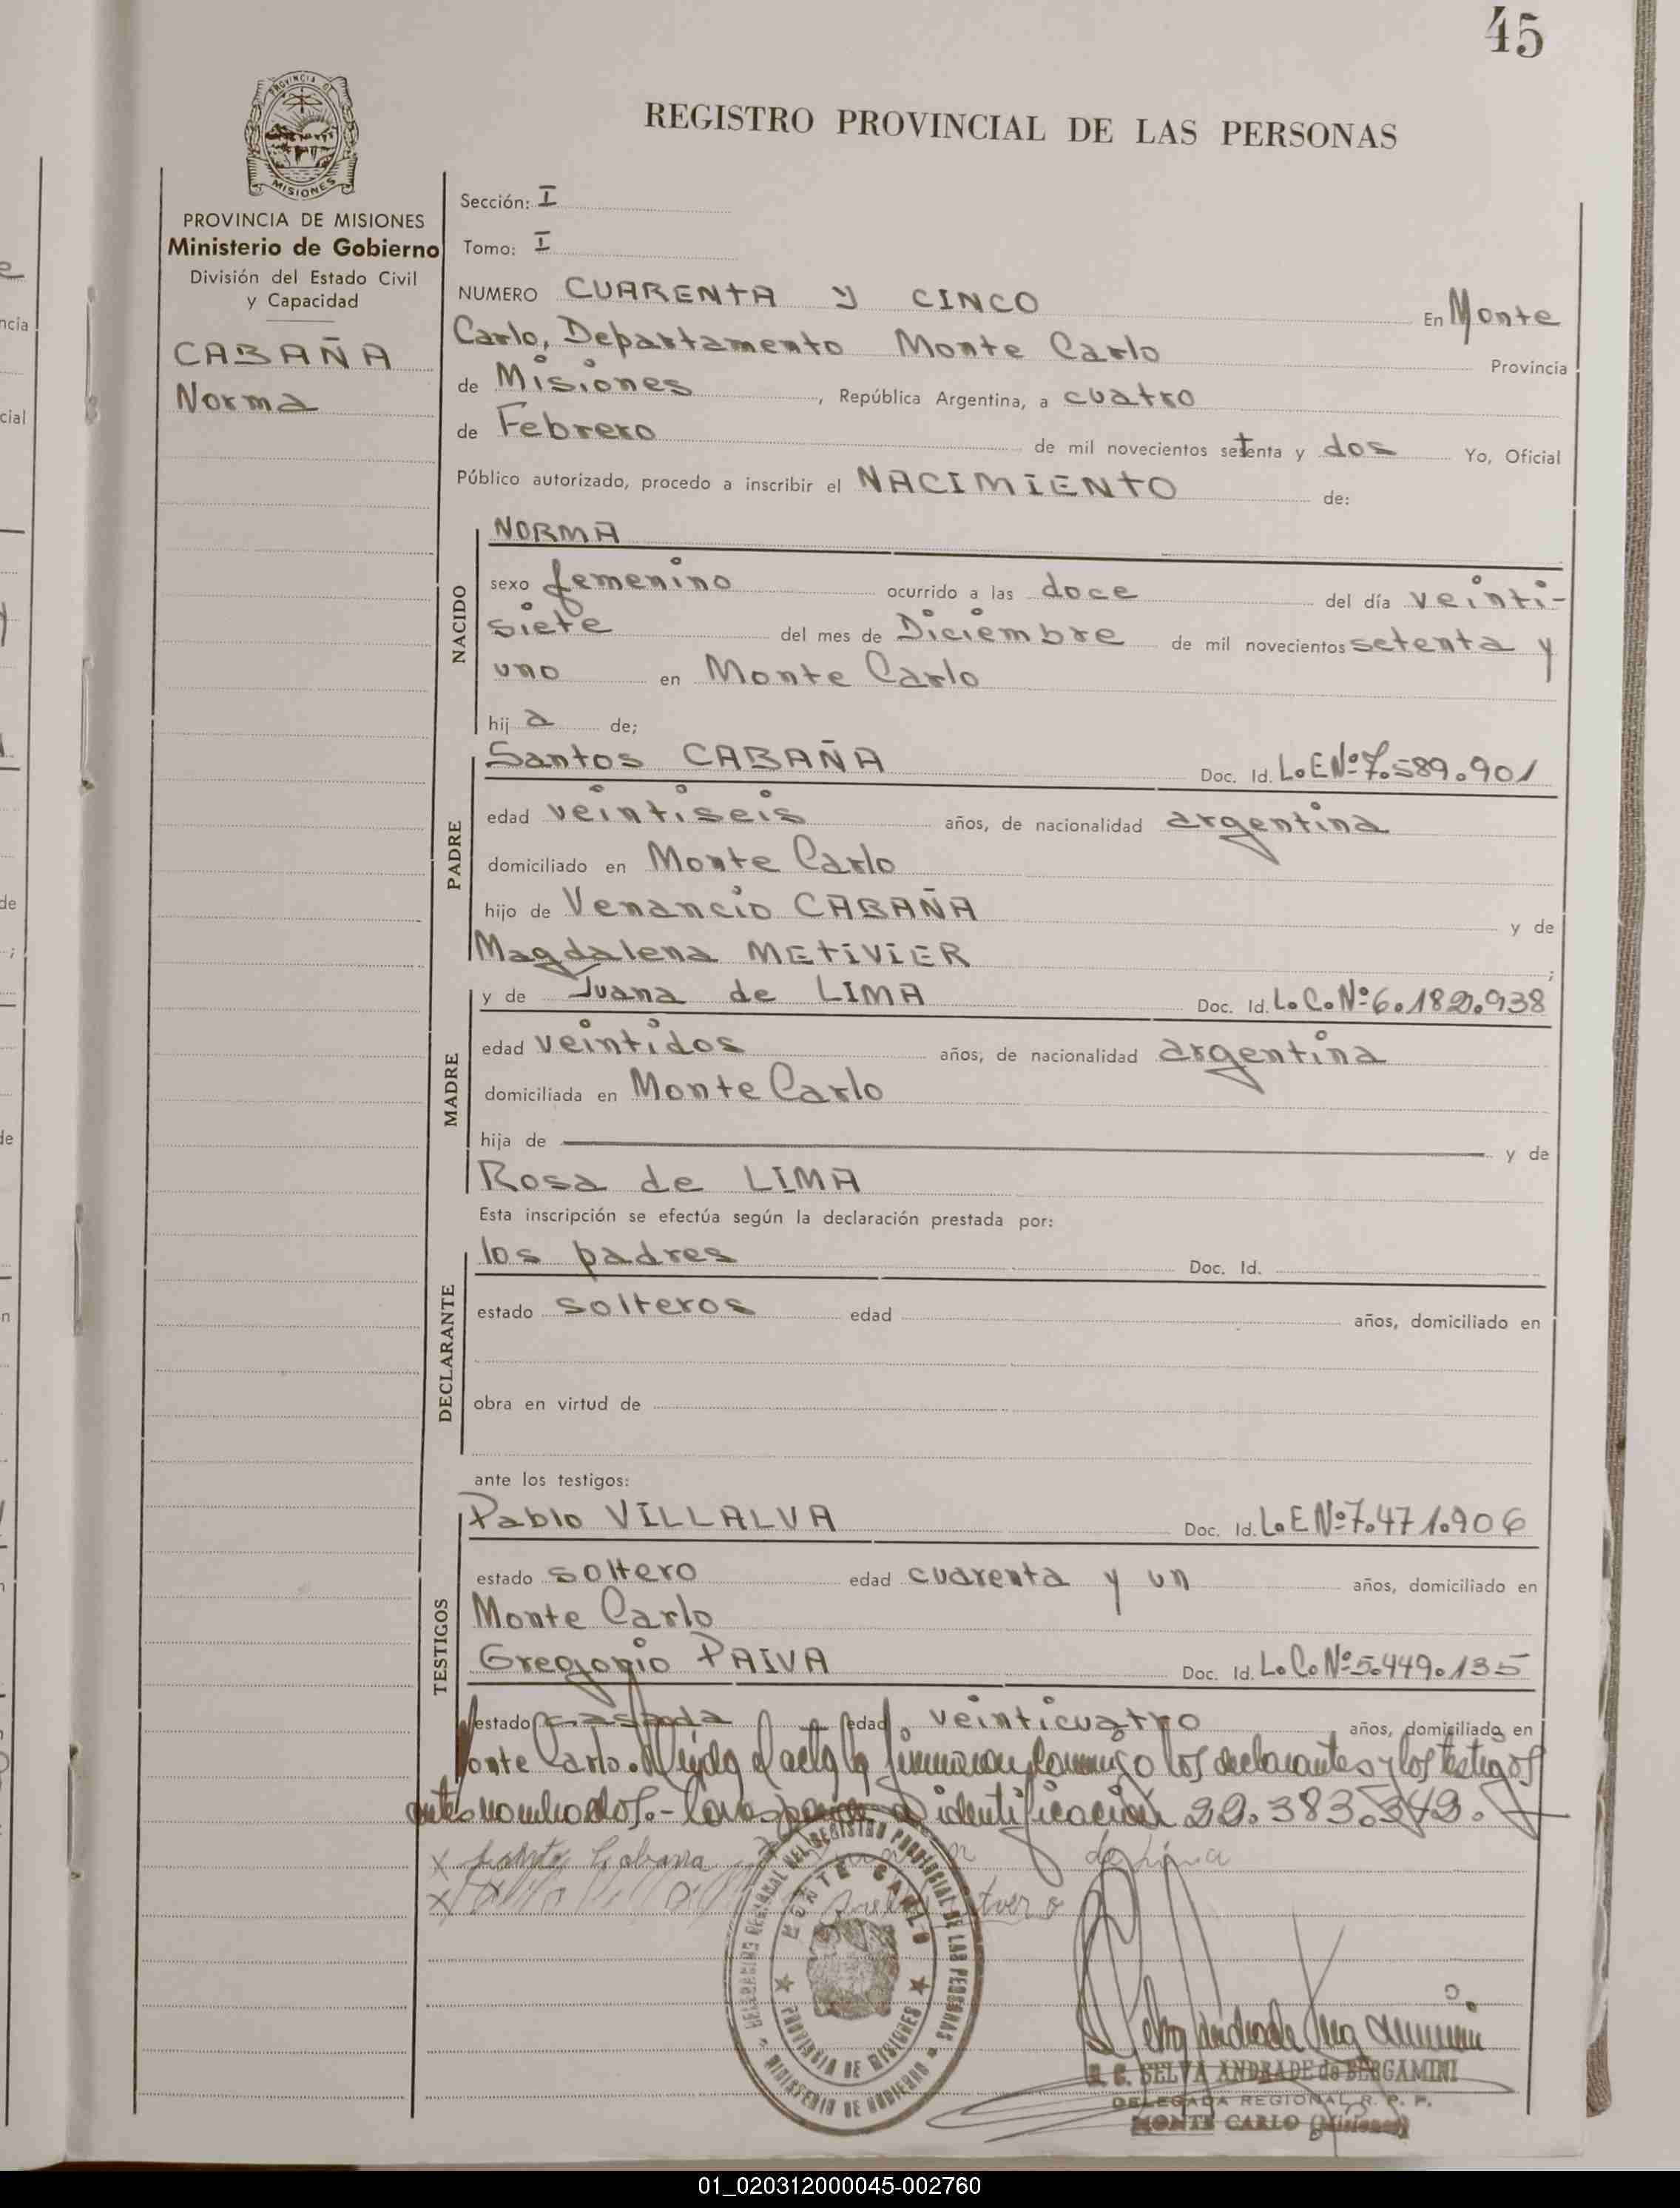 45
PROVINCIA DE
MISIONES
REGISTRO PROVINCIAL DE LAS PERSONAS
PROVINCIA DE MISIONES
Ministerio de Gobierno
División del Estado Civil
y Capacidad
CABAÑA
Norma
Sección: I
Tomo: I
NUMERO CUARENTA Y CINCO En Monte
Carlo, Departamento Monte Carlo Provincia
de Misiones, República Argentina, a cuatro
de Febrero de mil novecientos setenta y dos Yo, Oficial
Público autorizado, procedo a inscribir el NACIMIENTO de:
NACIDO
NORMA
sexo femenino ocurrido a las doce del día veinti-
siete del mes de Diciembre de mil novecientos setenta y
uno en Monte Carlo
hij a de;
PADRE
Santos CABAÑA Doc. Id. L.E.Nº 7.589.901
edad veintiseis años, de nacionalidad argentina
domiciliado en Monte Carlo
hijo de Venancio CABAÑA y de
Magdalena METIVIER ;
MADRE
y de Juana de LIMA Doc. Id. L.C.Nº 6.182.938
edad veintidos años, de nacionalidad argentina
domiciliada en Monte Carlo
hija de y de
Rosa de LIMA
Esta inscripción se efectúa según la declaración prestada por:
DECLARANTE
los padres Doc. Id.
estado solteros edad años, domiciliado en
obra en virtud de
ante los testigos:
TESTIGOS
Pablo VILLALVA Doc. Id. L.E Nº 7.471.906
estado soltero edad cuarenta y un años, domiciliado en
Monte Carlo
Gregorio PAIVA Doc. Id. L.C. Nº 5.449.135
estado casada edad veinticuatro años, domiciliado en
Monte Carlo. Leída el acta la firmaron conmigo los declarantes y los testigos
antes nombrados.- Corresponde a identificación 22.383.342.
x Santo Cabana de Lima
x
DELEGACION REGIONAL DEL REGISTRO PROVINCIAL DE LAS PERSONAS
MONTE CARLO
PROVINCIA DE MISIONES
MINISTERIO DE GOBIERNO
Selva Andrade
SELVA ANDRADE de BERGAMINI
DELEGADA REGIONAL R. P. P.
MONTE CARLO (Misiones)
01_020312000045-002760